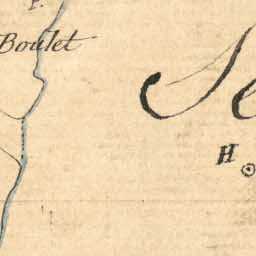 F.
Boulet
Se
H